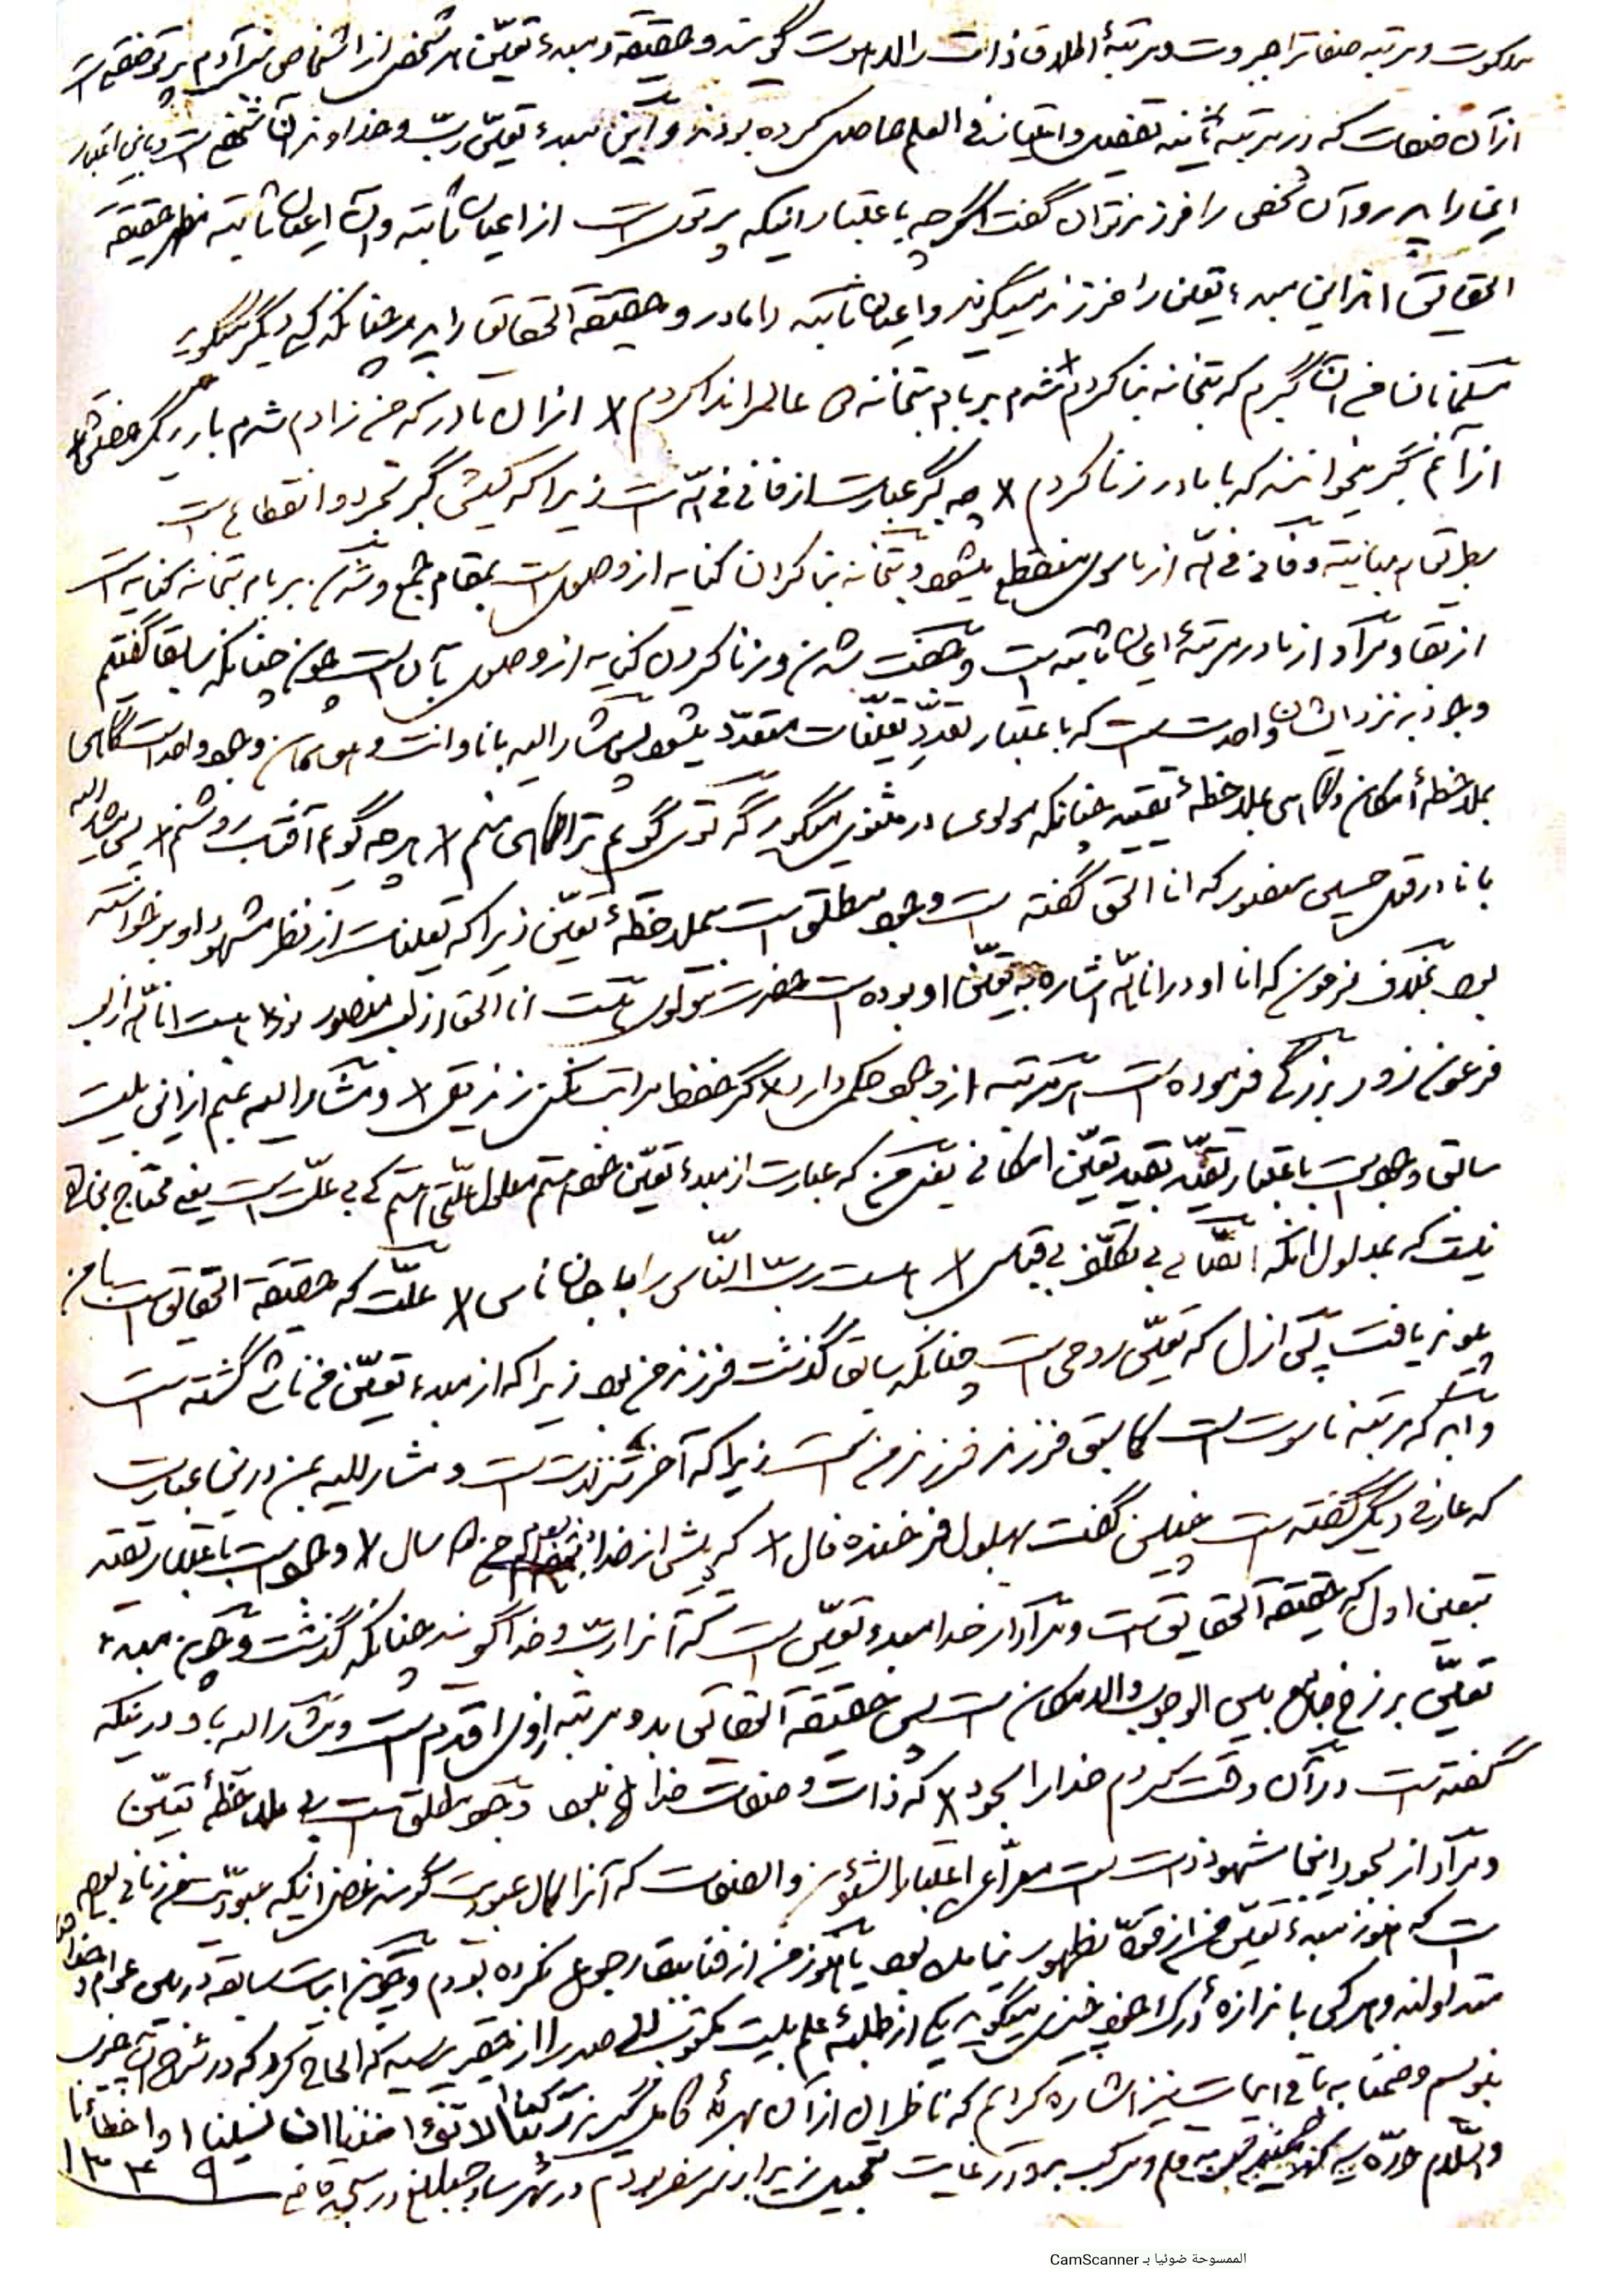 ملکوت ومرتبه صفاترا جبروت ومرتبهٔ اطلاق ذاترا لاهوت گویند وحقیقة ومبدء تعیّن هر شخص از اشخاص بنی آدم پرتو حقیقت
از آن صفات که در مرتبه ثانیه تفصیل وامتیاز فی العلم حاصل کرده بودند واین مبدء تعیّن ربّ وخداوند آن شخص است وباین اعتبار
اینرا پدر وآن شخص را فرزند توان گفت اگرچه باعتبار اینکه پرتو است از اعیان ثابته وآن اعیان ثابته مظهر حقیقة
الحقایق از این مبدء تعین را فرزند میگویند واعیان ثابته را مادر وحقیقة الحقایق را پدر چنانکه دیگر میگوید
مسلمانان من آن گبرم که بتخانه بنا کردم شدم بر بام بتخانه در عالم ندا کردم از آن مادر که من زادم شدم بار دیگر جفتش
از آنم گبر میخوانند که با مادر زنا کردم چه گبر عبارت از فانی فی الله است زیراکه کیش گبر تجرد وانقطاع است
وفانی فی الله از ماسوی منقطع میشود وبتخانه بنا کردن کنایه از وصول است بمقام جمع وشدن بر بام بتخانه کنایه است
از بقا ومراد از مادر مرتبهٔ اعیان ثابته است وجفت شدن وزنا کردن کنایه از وصول بآن است چون چنانکه سابقا گفتیم
وجود نزد ایشان واحد است که باعتبار تعدّد تعلّقات متعدّد میشود پس مشار الیه بانا وانت وهو همان وجود واحد است گاهی
بملاحظهٔ امکان وگاهی بملاحظهٔ تعین چنانکه مولوی در مثنوی میگوید گه توی گویم ترا گاهی منم هرچه گویم آفتاب روشنم پس مشار الیه
بانا در قول حسین منصور که انا الحق گفته است وجود مطلق است بی ملاحظهٔ تعیّن زیراکه تعینات از نظر شهود او برخواسته
بود بخلاف فرعون که انا او در انا الله اشاره به تعیّن او بوده است حضرت مولوی انا الحق از لب منصور نور انا الله از لب
فرعون زور بزرگی فرموده است هر مرتبه از وجود حکمی دارد گر حفظ مراتب نکنی زندیقی ومشار الیه بمنم از این بیت
سابق وجود است باعتبار تقیّد بقید تعیّن امکانی یعنی من که عبارت از مبدء تعیّن خودستم معلول علّتی هستم که بی علّت است یعنی محتاج بخالق
نیست که بمدلول آنکه اتّصالی بی تکلّف بی قیاس هست ربّ النّاس را با جان ناس علّت که حقیقة الحقایق است با من
پیوند یافت پس ازل که تعیّن روحی است چنانکه سابق گذشت فرزند من بود زیراکه از مبدء تعیّن من ناشی گشته است
وابد که مرتبه ناسوت است کما سبق فرزند فرزند من است زیراکه آخر تنزلات است ومشار الیه بمن در این عبارت
که عارف دیگر گفته است چنین گفت بهلول فرخنده فال که پیش از خدا بودم من سال وجود است باعتبار تعین
بتعین اول که حقیقة الحقایق است ومراد از خدا مبدء تعیّن است که آنرا ربّ وخدا گویند چنانکه گذشت وچون مبدء
تعیّن برزخ جامع بین الوجوب والامکان است پس حقیقة الحقایق بدو مرتبه از او اقدم است ومشار الیه باو در اینکه
گفته است در آن وقت کردم خدا را سجود که ذات وصفات خدا هم نبود وجود مطلق است بی ملاحظهٔ تعیّن
ومراد از سجود اینجا شهود ذات است معرّا عن اعتبار الشئون والصفات که آنرا کمال عبودیت گویند غرض اینکه عبودیت من زمانی بوده
است که هنوز مبدء تعیّن من از قوّه بظهور نیامده بود یا هنوز من از فنا ببقا رجوع نکرده بودم وچون ابیات سابقه در میان عوام
متداولند وهر کی باندازهٔ ادراک خود چیزی میگوید یکی از طلبهٔ علم از حقیر الحاح کرد که در شرح آن چیزی
بنویسم وضمنا به باقی ابیات نیز اشاره کرده ام که ناظران از آن بهرهٔ کامل گیرند ربّنا لا تؤاخذنا ان نسینا او اخطأنا
والسّلام در شهر ساوجبلاغ در سنه
١٣٣٩
الممسوحة ضوئيا بـ CamScanner